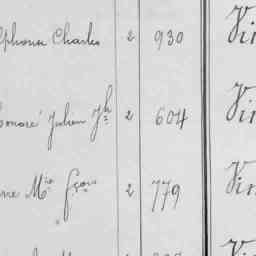 lphonse Charles 2 930 Vi
onoré Julien Jh 2 604 Vi
ne Mie Fçois 2 779 Vin
2